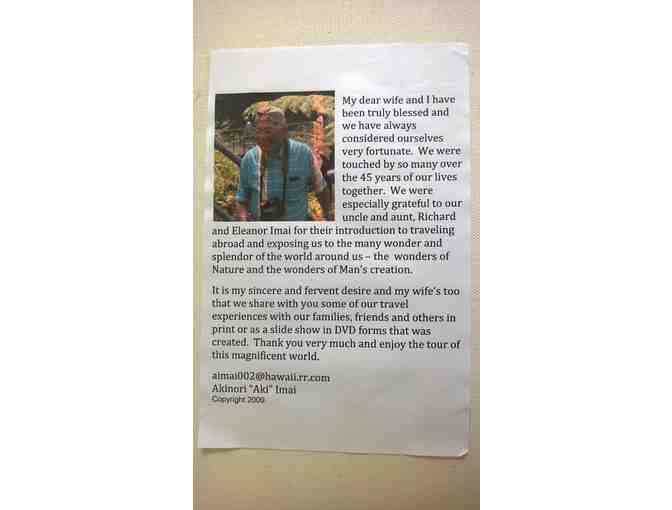 My dear wife and I have
been truly blessed and
we have always
considered ourselves
very fortunate.  We were
touched by so many over
the 45 years of our lives
together.  We were
especially grateful to our
uncle and aunt, Richard
and Eleanor Imai for their introduction to traveling
abroad and exposing us to the many wonder and
splendor of the world around us – the  wonders of
Nature and the wonders of Man's creation.
It is my sincere and fervent desire and my wife's too
that we share with you some of our travel
experiences with our families, friends and others in
print or as a slide show in DVD forms that was
created.  Thank you very much and enjoy the tour of
this magnificent world.
aimai002@hawaii.rr.com
Akinori "Aki" Imai
Copyright 2009.